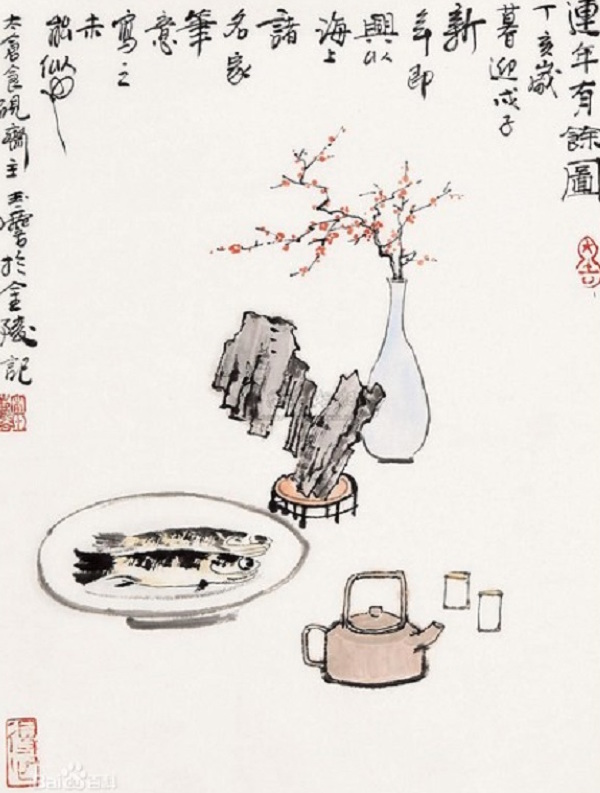 連年有餘圖
丁亥歲
暮迎戊子
新
年即
興以
海上
諸
名家
筆
意
寫之
未
能似也
食硯齋主玉於金陵記
大吉
Baidu百科